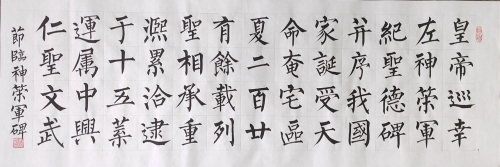 皇帝巡幸
左神策軍
紀聖德碑
并序我國
家誕受天
命奄宅區
夏二百廿
有餘載列
聖相承重
熙累洽逮
于十五葉
運属中興
仁聖文武
節臨神策軍碑